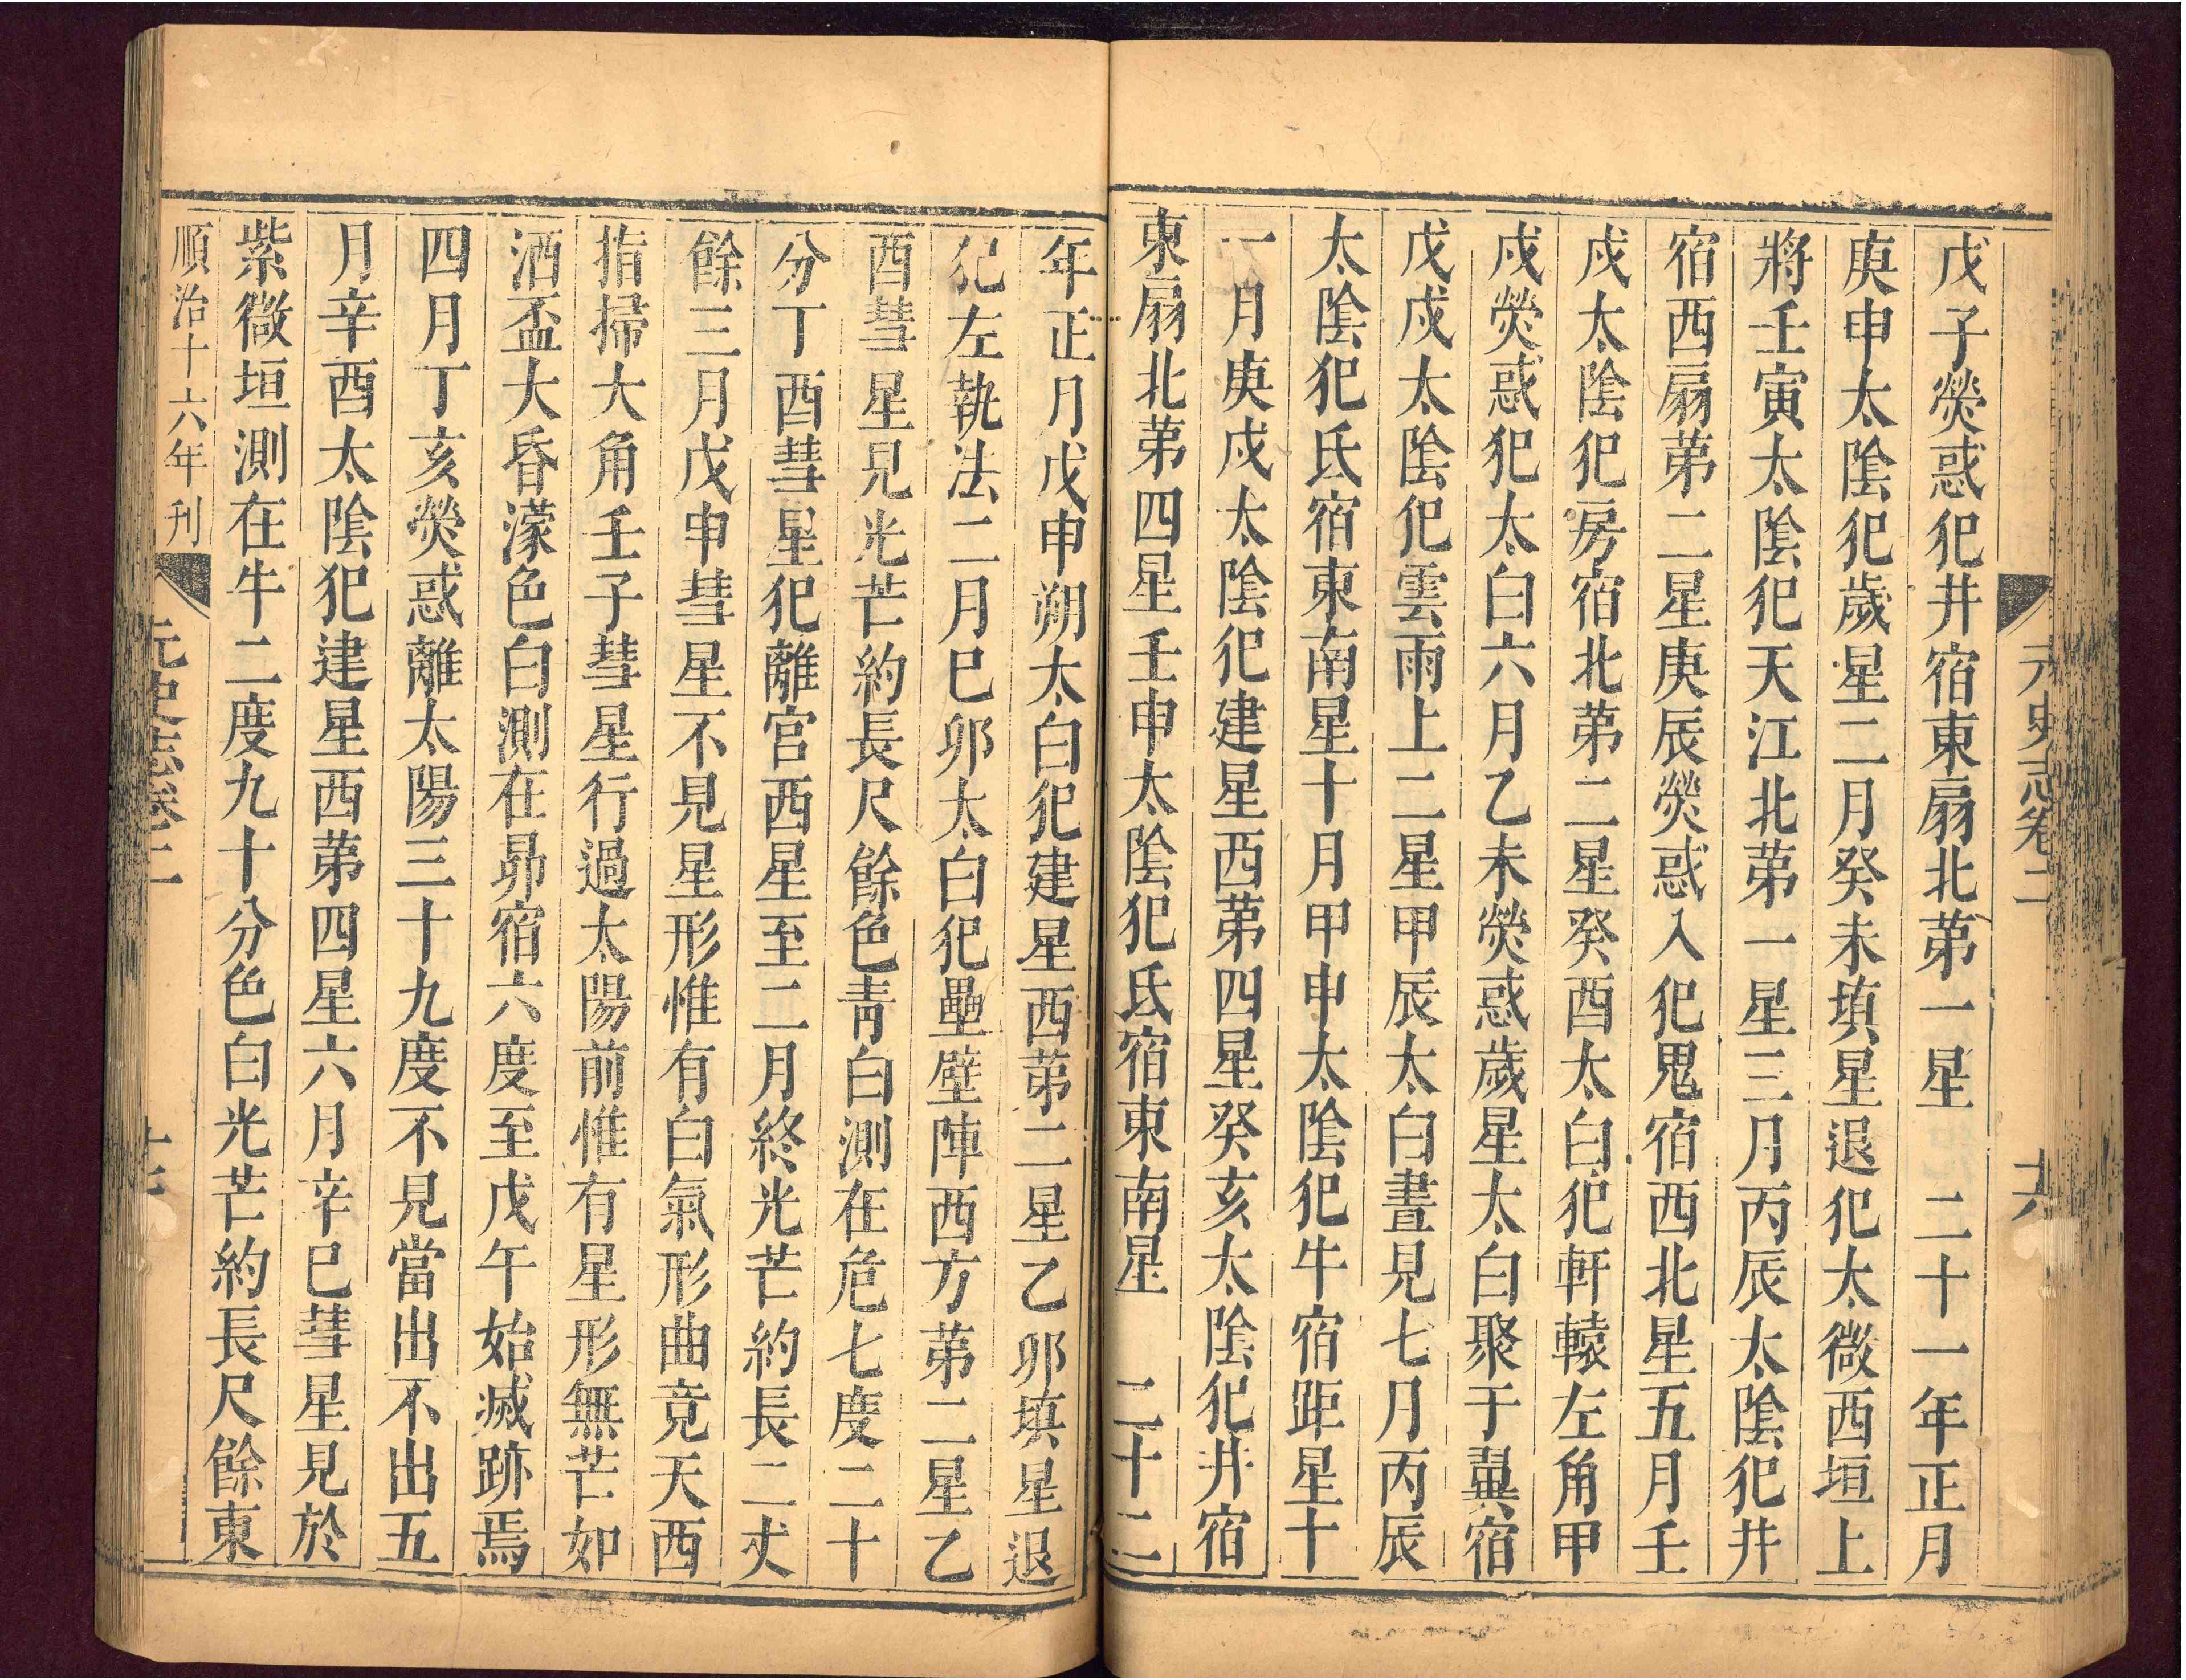 元史志卷二　十六
戊子熒惑犯井宿東扇北第一星　二十一年正月
庚申太陰犯歲星二月癸未填星退犯太微西垣上
將壬寅太陰犯天江北第一星三月丙辰太陰犯井
宿西扇第二星庚辰熒惑入犯鬼宿西北星五月壬
戌太陰犯房宿北第二星癸酉太白犯軒轅左角甲
戌熒惑犯太白六月乙未熒惑歲星太白聚于翼宿
戊戌太陰犯雲雨上二星甲辰太白晝見七月丙辰
太陰犯氐宿東南星十月甲申太陰犯牛宿距星十
一月庚戌太陰犯建星西第四星癸亥太陰犯井宿
東扇北第四星壬申太陰犯氐宿東南星　二十二
年正月戊申朔太白犯建星西第二星乙卯填星退
犯左執法二月巳卯太白犯壘壁陣西方第二星乙
酉彗星見光芒約長尺餘色青白測在危七度二十
分丁酉彗星犯離宮西星至二月終光芒約長二丈
餘三月戊申彗星不見星形惟有白氣形曲竟天西
指掃大角壬子彗星行過太陽前惟有星形無芒如
酒盃大昏濛色白測在昴宿六度至戊午始滅跡焉
四月丁亥熒惑離太陽三十九度不見當出不出五
月辛酉太陰犯建星西第四星六月辛巳彗星見於
紫微垣測在牛二度九十分色白光芒約長尺餘東
順治十六年刊
元史志卷二